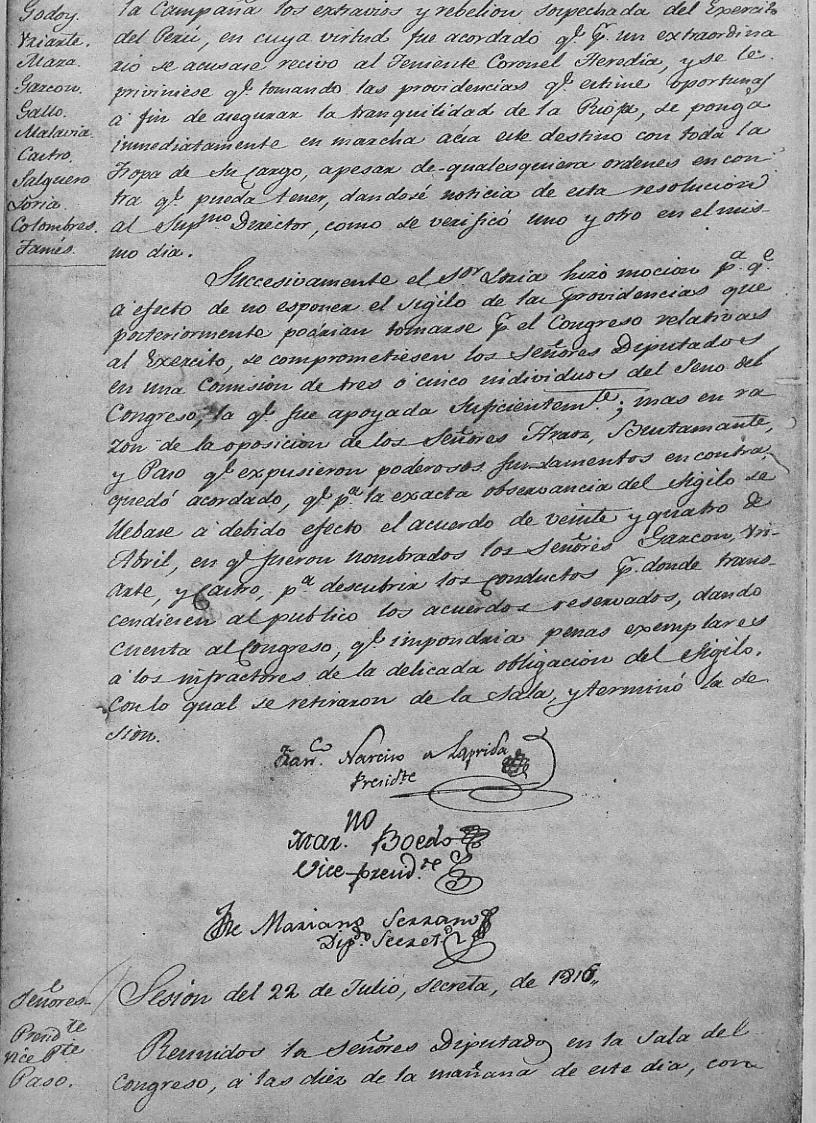 Godoy.
Yriarte.
Maza.
Garcon.
Gallo.
Malavia.
Castro.
Salguero
Loria.
Colombres.
Famés.
la Campaña los extravios y rebelion sospechada del Exercito
del Perú, en cuya virtud fue acordado qe. p. un extraordina
rio se acusase recivo al Teniente Coronel Heredia, y se le
priviniese qe. tomando las providencias qe. estime oportunas
a fin de asegurar la tranquilidad de la Rioja, se ponga
immediatamente en marcha acia este destino con toda la
tropa de su cargo, apesar de qualesquiera ordenes en con
tra qe. pueda tener, dandose noticia de esta resolucion
al Supmo. Director, como se verificó uno y otro en el mis-
mo dia.
Succesivamente el Sor. Loria hizo mocion pa. qe.
a efecto de no esponer el Sigilo de las providencias que
posteriormente podrian tomarse p. el Congreso relativas
al Exercito, se comprometiesen los Señores Diputados
en una Comision de tres ó cinco individuos del Seno del
Congreso, la qe. fue apoyada suficientemte.; mas en ra
zon de la oposicion de los Señores Araoz, Bustamante,
y Paso qe. expusieron poderosos fundamentos en contra
quedó acordado, qe. pa. la exacta observancia del Sigilo se
llebase a debido efecto el acuerdo de veinte y quatro de
Abril, en qe. fueron nombrados los Señores Garcon, Yri-
arte, y Castro, pa. descubrir los conductos p. donde trans-
cendiesen al publico los acuerdos reservados, dando
cuenta al Congreso, qe. impondria penas exemplares
a los infractores de la delicada obligacion del Sigilo.
Con lo qual se retiraron de la Sala, y terminó la se
sion.
Franco. Narciso de Laprida
Presidte
Mar.no Boedo
Vice-presid.te
Jse Mariano Serrano
Dipdo. Secreto
Señores
Sesion del 22 de Julio, secreta, de 1816.
Presidte
Vice Pte
Paso.
Reunidos los Señores Diputados en la Sala del
Congreso, a las diez de la mañana de este dia, con